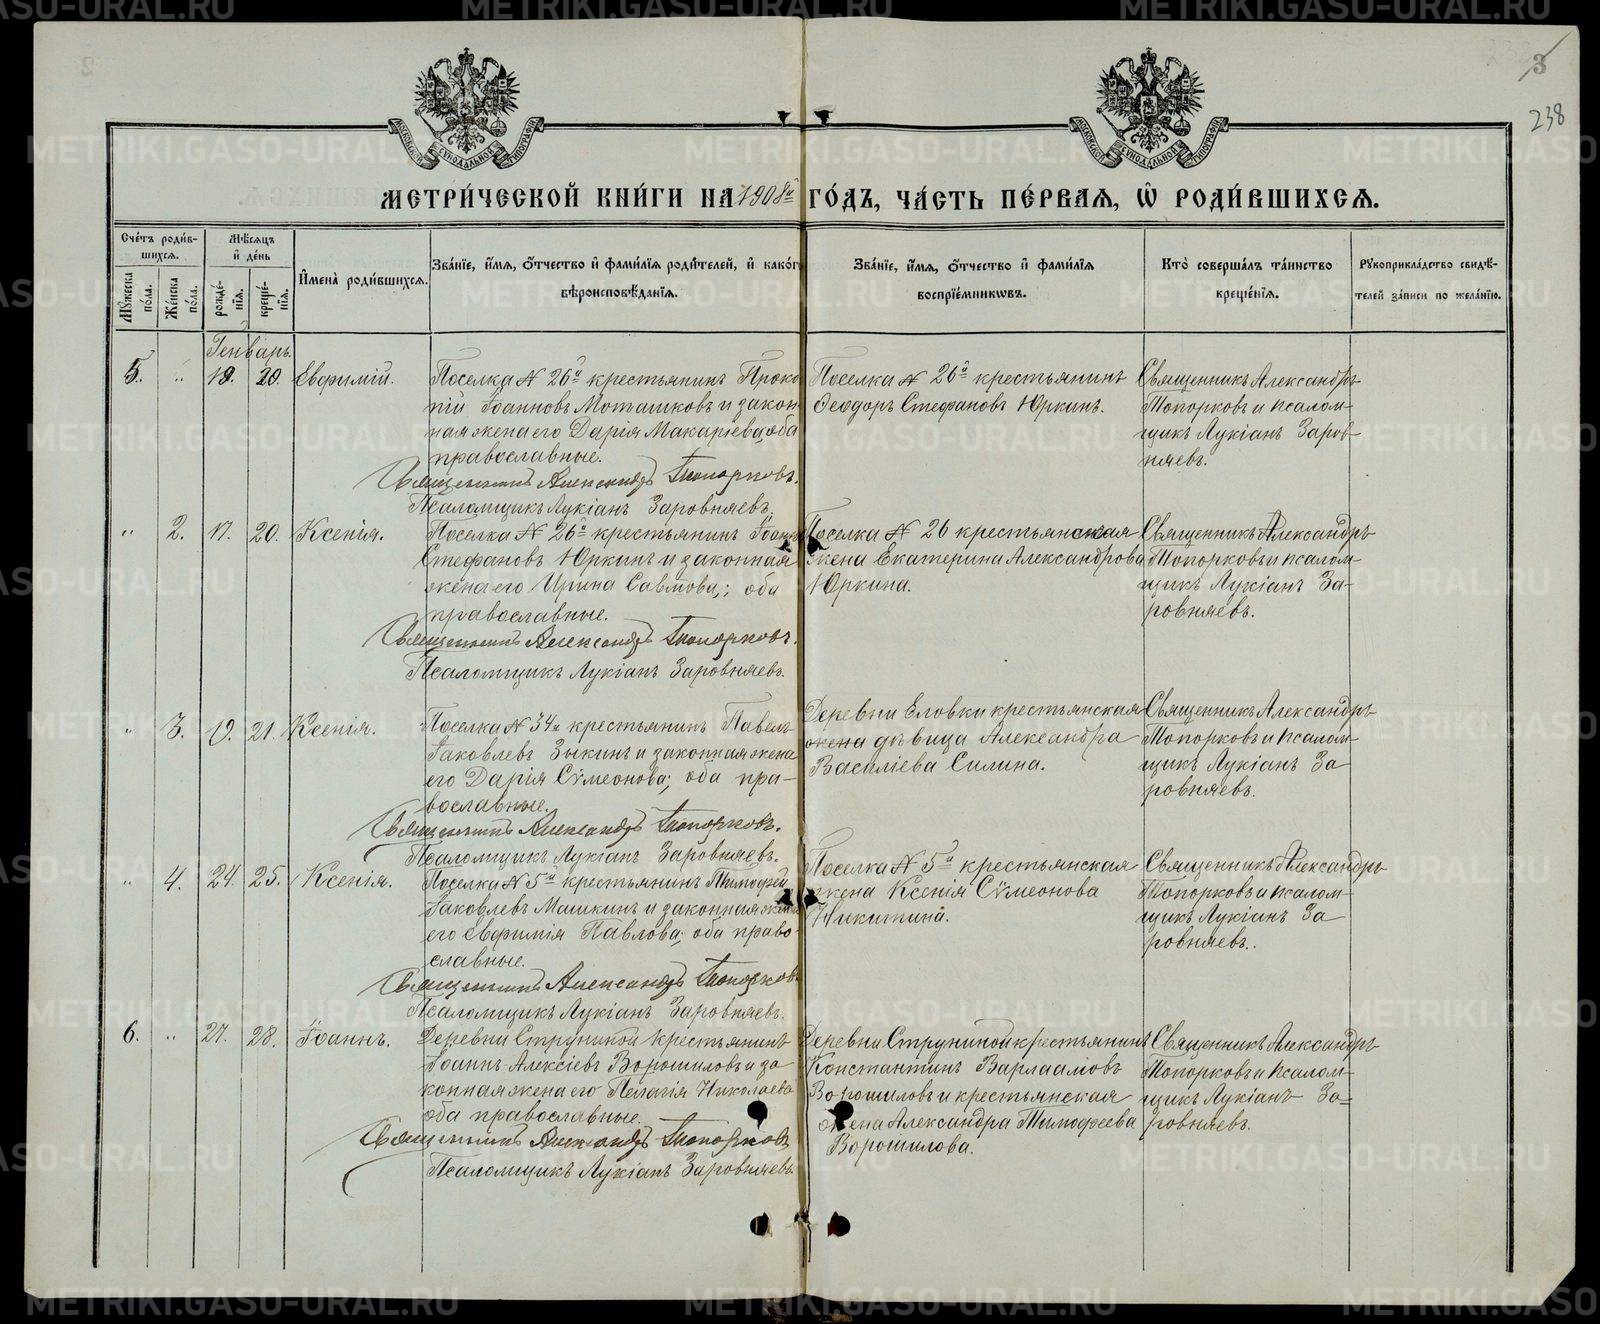 3
238
МЕТРИ́ЧЕСКОЙ КНИ́ГИ НА 1908й ГО́ДЪ, ЧА́СТЬ ПЕ́РВАѦ, Ѡ РОДИ́ВШИХСѦ.
Сче́тъ роди́в-
шихсѧ.
Мѣ́сѧцъ
и҆ де́нь
Мꙋ́жеска по́ла.
Же́нска по́ла.
рожде́-
нїѧ.
креще́-
нїѧ.
И҆мена̀ роди́вшихсѧ.
Зва́нїе, и҆́мѧ, ѻ҆́тчество и҆ фами́лїѧ роди́телей, и҆ како́гѡ
вѣроисповѣ́данїѧ.
Зва́нїе, и҆́мѧ, ѻ҆́тчество и҆ фами́лїѧ
воспрїе́мникѡвъ.
Кто̀ соверша́лъ та́инство
креще́нїѧ.
Рꙋкоприкла́дство свидѣ́-
телей за́писи по жела́нїю.
Генварь.
5. " 19. 20. Евфимій.
Поселка № 26й крестьянинъ Проко
пій Іоанновъ Моташковъ и закон-
ная жена его Дарія Макаріева; оба
православные.
Священникъ Александръ Топорковъ.
Псаломщикъ Лукіанъ Заровняевъ.
Поселка № 26й крестьянинъ
Ѳеодоръ Стефановъ Юркинъ.
Священникъ Александръ
Топорковъ и псалом-
щикъ Лукіанъ Заров-
няевъ.
" 2. 17. 20. Ксенія.
Поселка № 26й крестьянинъ Іоаннъ
Стефановъ Юркинъ и законная
жена его Ирина Саввова; оба
православные.
Священникъ Александръ Топорковъ.
Псаломщикъ Лукіанъ Заровняевъ.
Поселка № 26 крестьянская
жена Екатерина Александрова
Юркина.
Священникъ Александръ
Топорковъ и псалом-
щикъ Лукіанъ За-
ровняевъ.
" 3. 19. 21. Ксенія.
Поселка № 34й крестьянинъ Павелъ
Іаковлевъ Зыкинъ и законная жена
его Дарія Сѵмеонова; оба пра-
вославные.
Священникъ Александръ Топорковъ.
Псаломщикъ Лукіанъ Заровняевъ.
Деревни Еловки крестьянская
жена дѣвица Александра
Василіева Силина.
Священникъ Александръ
Топорковъ и псалом-
щикъ Лукіанъ За
ровняевъ.
" 4. 24. 25. Ксенія.
Поселка № 5й крестьянинъ Тимофей
Іаковлевъ Машкинъ и законная жена
его Евфимія Павлова; оба право-
славные.
Священникъ Александръ Топорковъ
Псаломщикъ Лукіанъ Заровняевъ.
Поселка № 5й крестьянская
жена Ксенія Сѵмеонова
Никитина.
Священникъ Александръ
Топорковъ и псалом-
щикъ Лукіанъ За
ровняевъ.
6. " 27. 28. Іоаннъ.
Деревни Струниной крестьянинъ
Іоаннъ Алексіевъ Ворошиловъ и за
конная жена его Пелагія Николаева
оба православные.
Священникъ Александръ Топорковъ
Псаломщикъ Лукіанъ Заровняевъ
Деревни Струниной крестьянинъ
Константинъ Варлаамовъ
Ворошиловъ и крестьянская
жена Александра Тимофеева
Ворошилова.
Священникъ Александръ
Топорковъ и псалом-
щикъ Лукіанъ За-
ровняевъ.